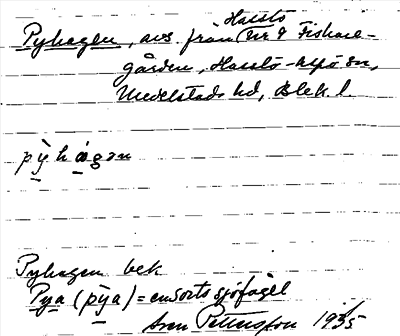 Hasslö
Pyhagen, avs. från nr 9 Fiskare-
gården, Hasslö - Aspö sn,
Medelstads hd, Blek. l.
pỳhagən
Pyhagen bek
Pya (pỳa) = en sorts sjöfågel
Sven Pettersson 1935